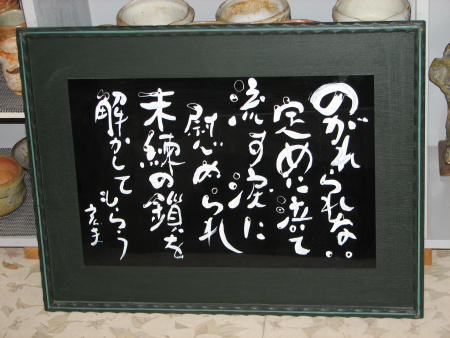 のがれられない
定めに泣て
流す涙に
慰められ
未練の鎖を
解かしてもらう